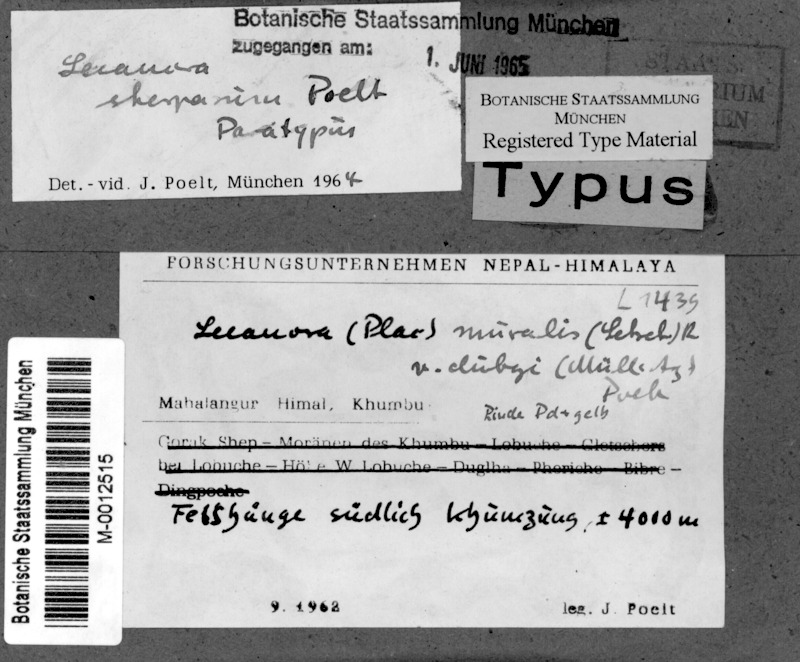 Botanische Staatssammlung München
zugegangen am:
1. JUNI 1965
Lecanora
sherparum Poelt
Paratypus
Det. - vid. J. Poelt, München 1964
STAATS
RIUM
EN
BOTANISCHE STAATSSAMMLUNG
MÜNCHEN
Registered Type Material
Typus
FORSCHUNGSUNTERNEHMEN NEPAL-HIMALAYA
L 1439
Lecanora (Plac) muralis (Schreb.) R
v. dubyi (Müll. Arg)
Poelt
Mahalangur Himal, Khumbu
Rinde Pd+ gelb
Gorak Shep - Moränen des Khumbu - Lobuche - Gletschers
bei Lobuche - Höhe W Lobuche - Duglha - Pheriche - Bibre -
Dingpoche
Felshänge südlich Khumzung, ± 4000 m
9. 1962
leg. J. Poelt
Botanische Staatssammlung München
M-0012515